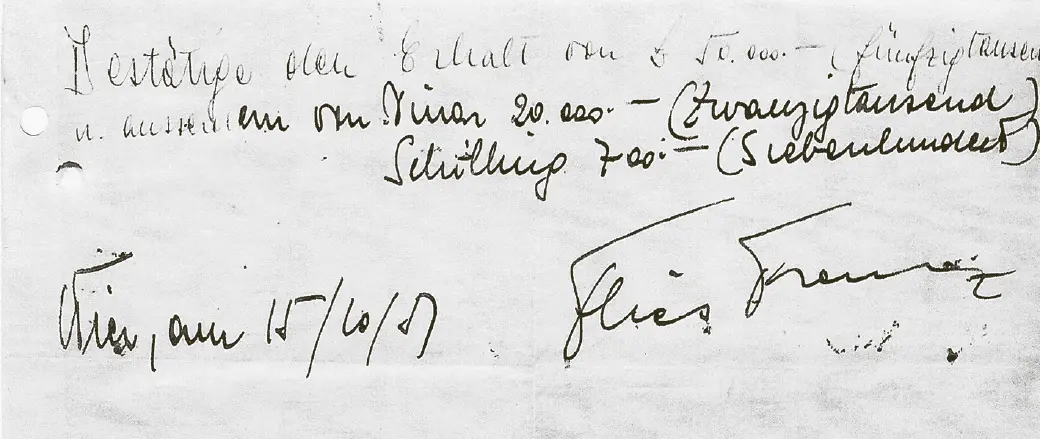 Bestätige den Erhalt von S 50.000.- (fünfzigtausen
u. ausserdem von Dinar 20.000.- (Zwanzigtausend)
Schilling 700.- (Siebenhundert)
Wien, am 15/10/87
Franz